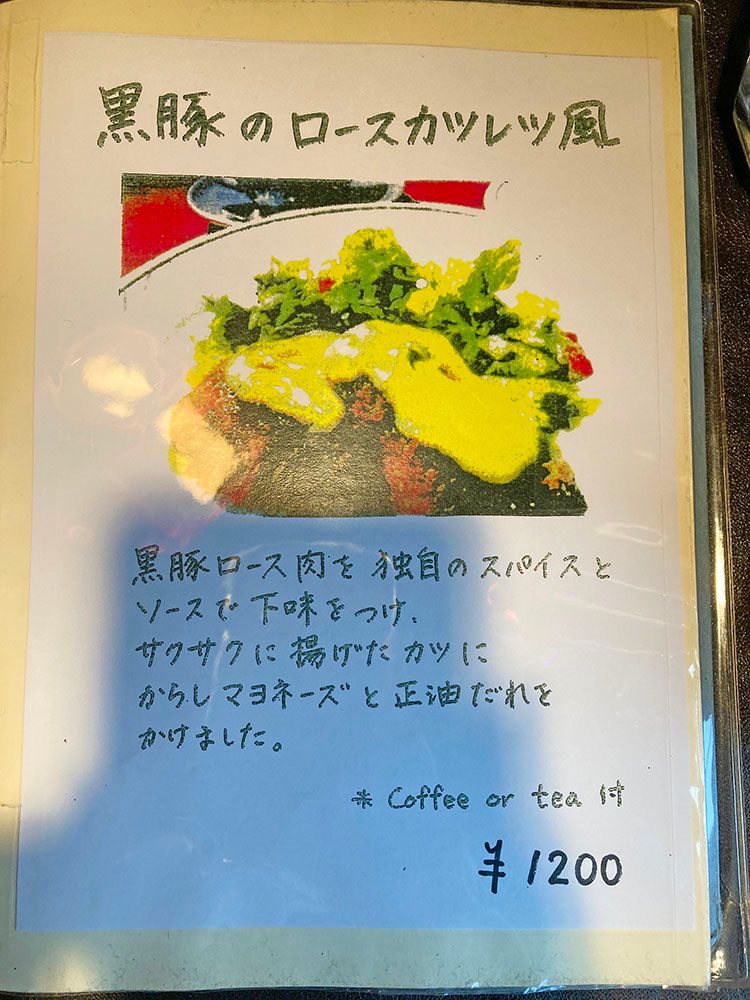 黒豚のロースカツレツ風
黒豚ロース肉を独自のスパイスと
ソースで下味をつけ、
サクサクに揚げたカツに
からしマヨネーズと正油だれを
かけました。
* Coffee or tea 付
¥1200